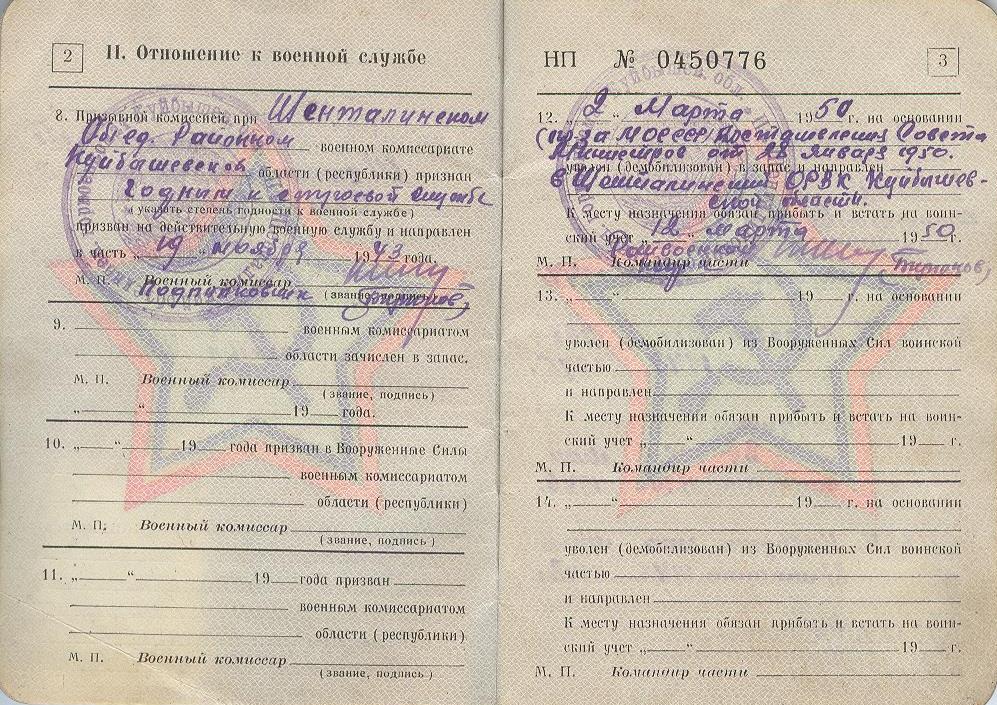 2
II. Отношение к военной службе
8. Призывной комиссией при Шенталинском
Объед. Районном военном комиссариате
Куйбышевской области (республики) признан
Годным к строевой службе
(указать степень годности к военной службе)
призван на действительную военную службу и направлен
в часть „19“ ноября 1943 года.
М. П. Военный комиссар
Подполковник (звание, подпись)
9. военным комиссариатом
области зачислен в запас.
М. П. Военный комиссар
(звание, подпись)
„ “ 19 года.
10. „ “ 19 года призван в Вооруженные Силы
военным комиссариатом
области (республики)
М. П. Военный комиссар
(звание, подпись)
11. „ “ 19 года призван
военным комиссариатом
области (республики)
М. П. Военный комиссар
(звание, подпись)
НП № 0450776
3
12. „2“ Марта 1950 г. на основании
Постановления Совета
Министров от 18 января 1950.
уволен (демобилизован) в запас и направлен
в Шенталинский ОРВК Куйбышев-
ской области.
К месту назначения обязан прибыть и встать на воин-
ский учет „12“ марта 1950 г.
Райвоенком
М. П. Командир части
13. „ “ 19 г. на основании
уволен (демобилизован) из Вооруженных Сил воинской
частью
и направлен
К месту назначения обязан прибыть и встать на воин-
ский учет „ “ 19 г.
М. П. Командир части
14. „ “ 19 г. на основании
уволен (демобилизован) из Вооруженных Сил воинской
частью
и направлен
К месту назначения обязан прибыть и встать на воин-
ский учет „ “ 19 г.
М. П. Командир части